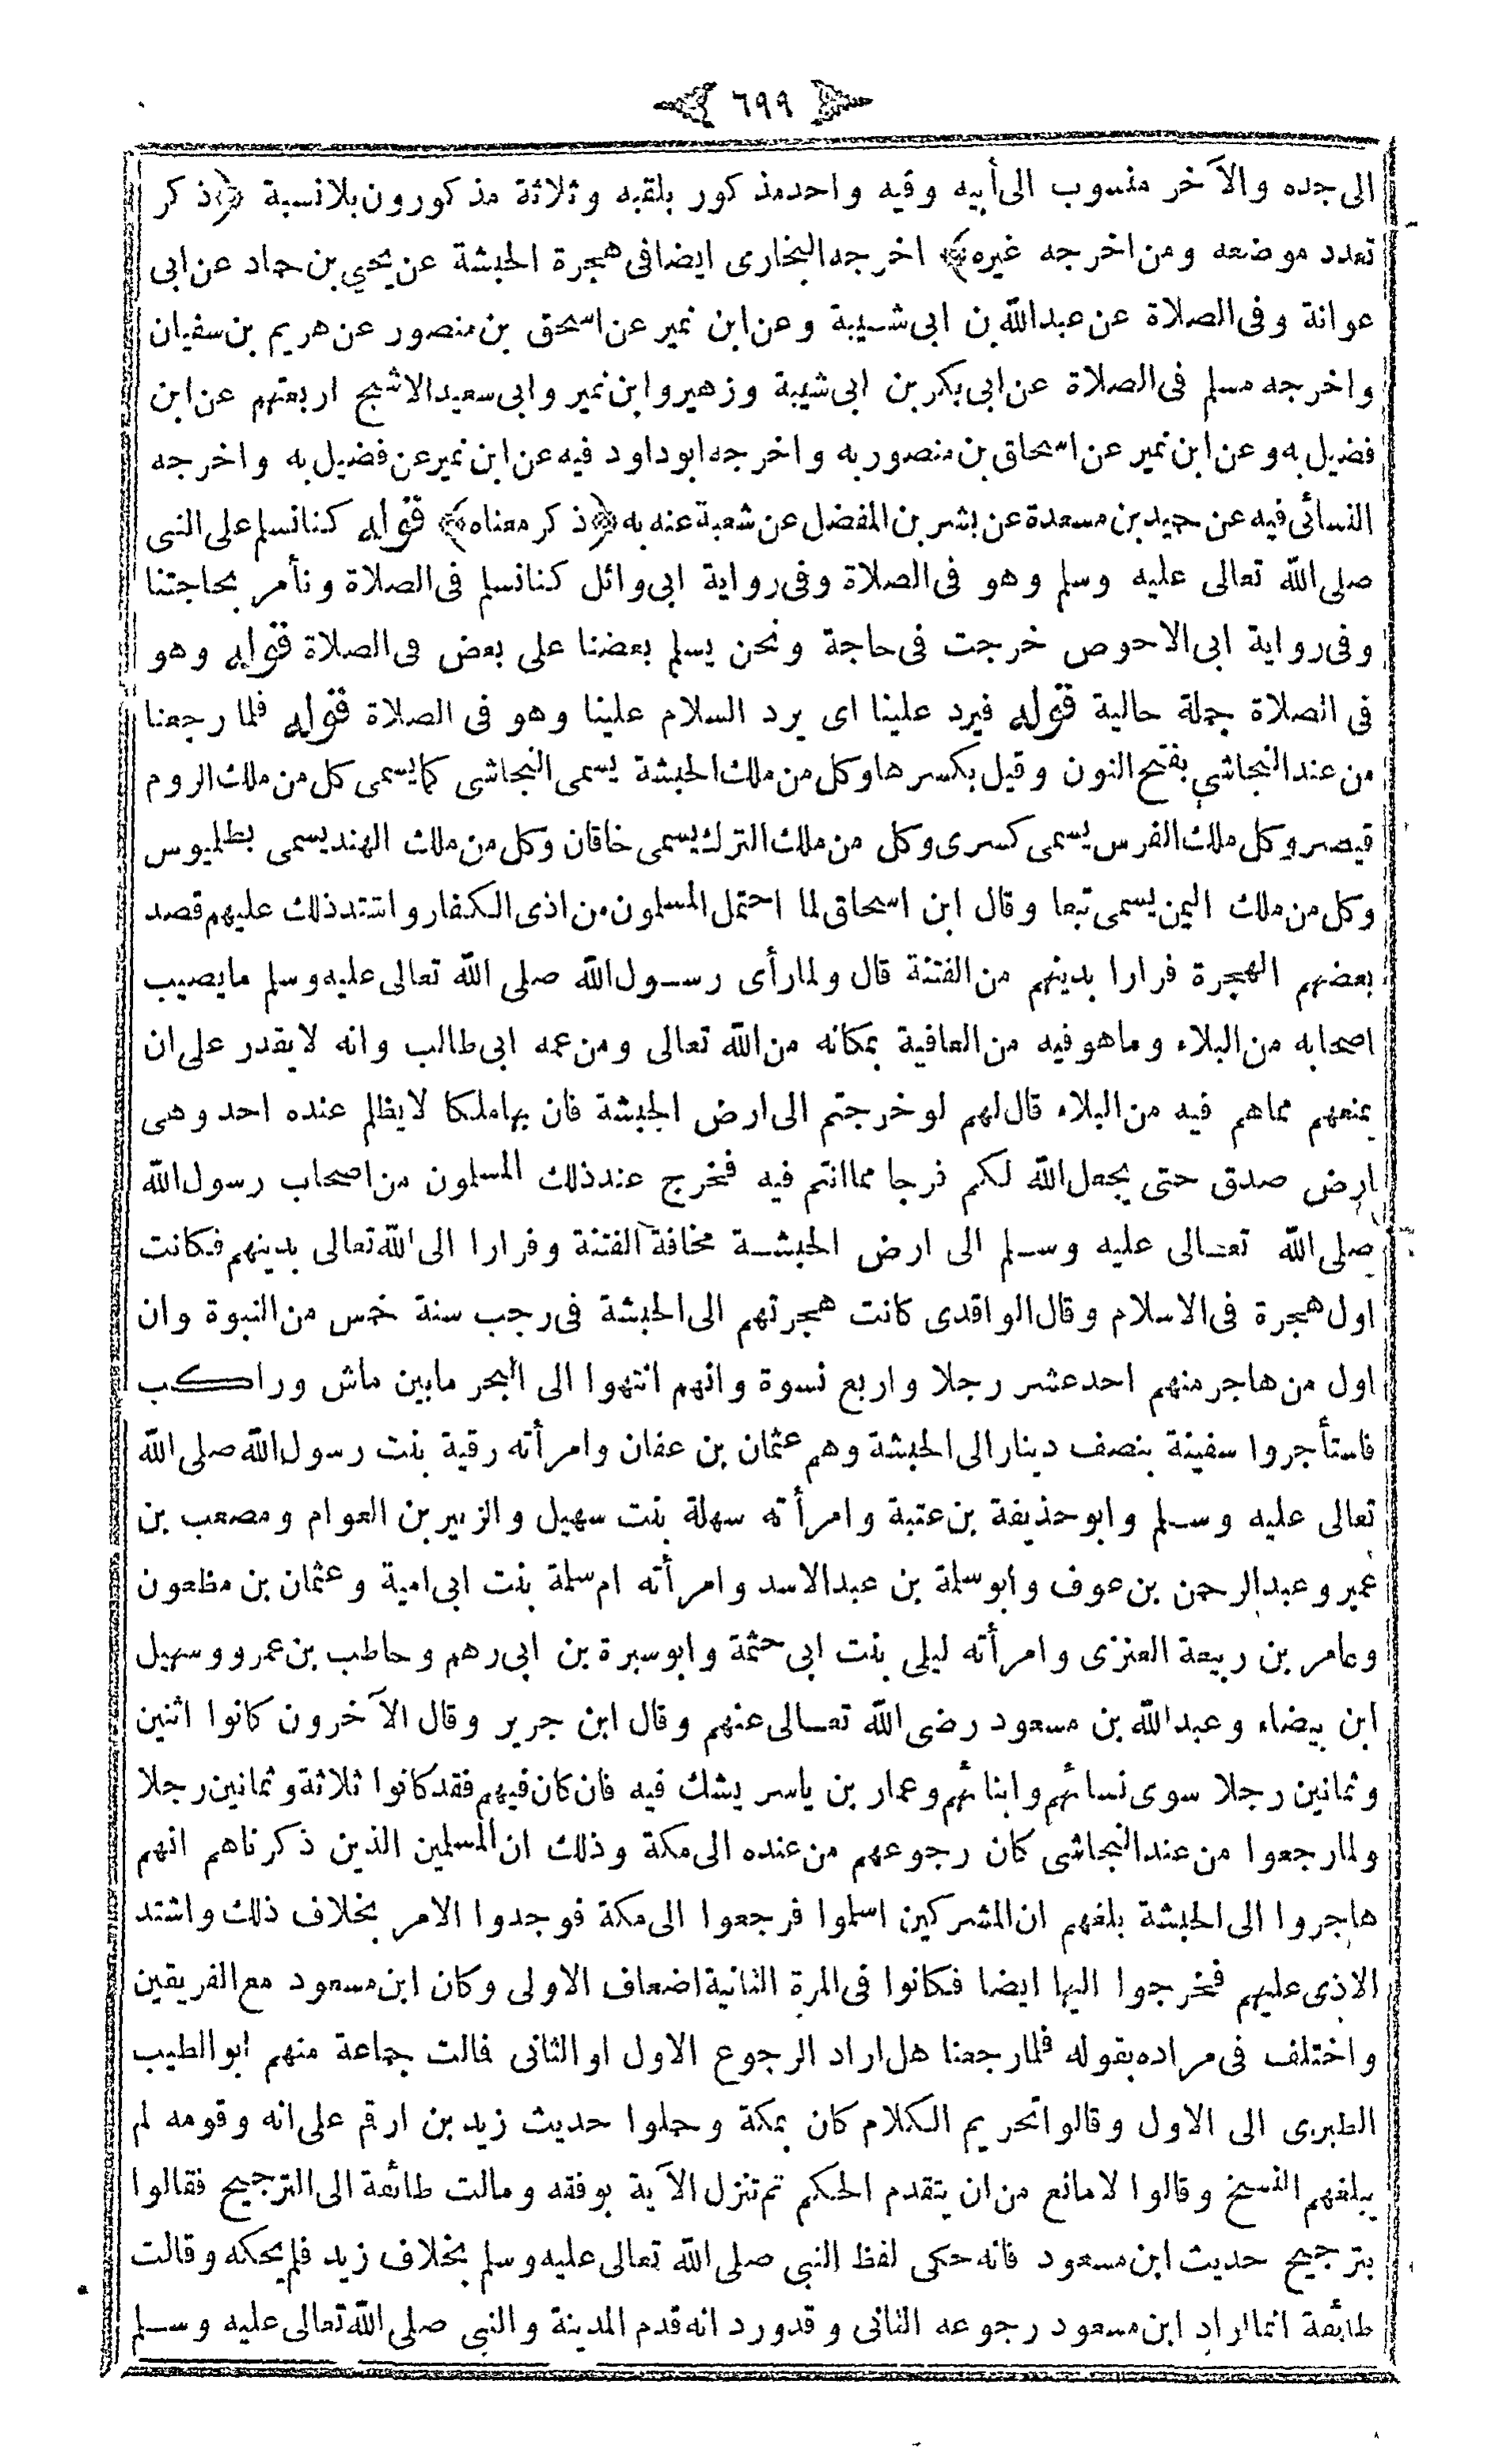 ٦٩٩
الى جده والآخر منسوب الى أبيه وفيه واحد مذكور بلقبه وثلاثة مذكورون بلا نسبة ﴿ذكر
تعدد موضعه ومن اخرجه غيره﴾ اخرجه البخارى ايضا فى هجرة الحبشة عن يحيى بن حماد عن ابى
عوانة وفى الصلاة عن عبدالله بن ابى شيبة وعن ابن نمير عن اسحق بن منصور عن هريم بن سفيان
واخرجه مسلم فى الصلاة عن ابى بكر بن ابى شيبة وزهير وابن نمير وابى سعيد الاشج اربعتهم عن ابن
فضيل به وعن ابن نمير عن اسحاق بن منصور به واخرجه ابو داود فيه عن ابن نمير عن فضيل به واخرجه
النسائى فيه عن حميد بن مسعدة عن بشر بن المفضل عن شعبة عنه به ﴿ذكر معناه﴾ قوله كنا نسلم على النبى
صلى الله تعالى عليه وسلم وهو فى الصلاة وفى رواية ابى وائل كنا نسلم فى الصلاة ونأمر بحاجتنا
وفى رواية ابى الاحوص خرجت فى حاجة ونحن يسلم بعضنا على بعض فى الصلاة قوله وهو
فى الصلاة جملة حالية قوله فيرد علينا اى يرد السلام علينا وهو فى الصلاة قوله فلما رجعنا
من عند النجاشى بفتح النون وقيل بكسرها وكل من ملك الحبشة يسمى النجاشى كما يسمى كل من ملك الروم
قيصر وكل ملك الفرس يسمى كسرى وكل من ملك الترك يسمى خاقان وكل من ملك الهند يسمى بطليوس
وكل من ملك اليمن يسمى تبعا وقال ابن اسحاق لما احتمل المسلمون من اذى الكفار واشتد ذلك عليهم قصد
بعضهم الهجرة فرارا بدينهم من الفتنة قال ولما رأى رسول الله صلى الله تعالى عليه وسلم ما يصيب
اصحابه من البلاء وما هو فيه من العافية بمكانه من الله تعالى ومن عمه ابى طالب وانه لا يقدر على ان
يمنعهم مما هم فيه من البلاء قال لهم لو خرجتم الى ارض الحبشة فان بها ملكا لا يظلم عنده احد وهى
ارض صدق حتى يجعل الله لكم فرجا مما انتم فيه فخرج عند ذلك المسلمون من اصحاب رسول الله
صلى الله تعالى عليه وسلم الى ارض الحبشة مخافة الفتنة وفرارا الى الله تعالى بدينهم فكانت
اول هجرة فى الاسلام وقال الواقدى كانت هجرتهم الى الحبشة فى رجب سنة خمس من النبوة وان
اول من هاجر منهم احد عشر رجلا واربع نسوة وانهم انتهوا الى البحر ما بين ماش وراكب
فاستأجروا سفينة بنصف دينار الى الحبشة وهم عثمان بن عفان وامرأته رقية بنت رسول الله صلى الله
تعالى عليه وسلم وابو حذيفة بن عتبة وامرأته سهلة بنت سهيل والزبير بن العوام ومصعب بن
عمير وعبد الرحمن بن عوف وابو سلمة بن عبد الاسد وامرأته ام سلمة بنت ابى امية وعثمان بن مظعون
وعامر بن ربيعة العنزى وامرأته ليلى بنت ابى حثمة وابو سبرة بن ابى رهم وحاطب بن عمرو وسهيل
ابن بيضاء وعبد الله بن مسعود رضى الله تعالى عنهم وقال ابن جرير وقال الآخرون كانوا اثنين
وثمانين رجلا سوى نسائهم وابنائهم وعمار بن ياسر يشك فيه فان كان فيهم فقد كانوا ثلاثة وثمانين رجلا
ولما رجعوا من عند النجاشى كان رجوعهم من عنده الى مكة وذلك ان المسلمين الذين ذكرناهم انهم
هاجروا الى الحبشة بلغهم ان المشركين اسلموا فرجعوا الى مكة فوجدوا الامر بخلاف ذلك واشتد
الاذى عليهم فخرجوا اليها ايضا فكانوا فى المرة الثانية اضعاف الاولى وكان ابن مسعود مع الفريقين
واختلف فى مراده بقوله فلما رجعنا هل اراد الرجوع الاول او الثانى فالت جماعة منهم ابو الطيب
الطبرى الى الاول وقالوا تحريم الكلام كان بمكة وحملوا حديث زيد بن ارقم على انه وقومه لم
يبلغهم النسخ وقالوا لا مانع من ان يتقدم الحكم ثم تنزل الآية بوفقه ومالت طائفة الى الترجيح فقالوا
بترجيح حديث ابن مسعود فانه حكى لفظ النبى صلى الله تعالى عليه وسلم بخلاف زيد فلم يحكه وقالت
طائفة انما اراد ابن مسعود رجوعه الثانى وقد ورد انه قدم المدينة والنبى صلى الله تعالى عليه وسلم